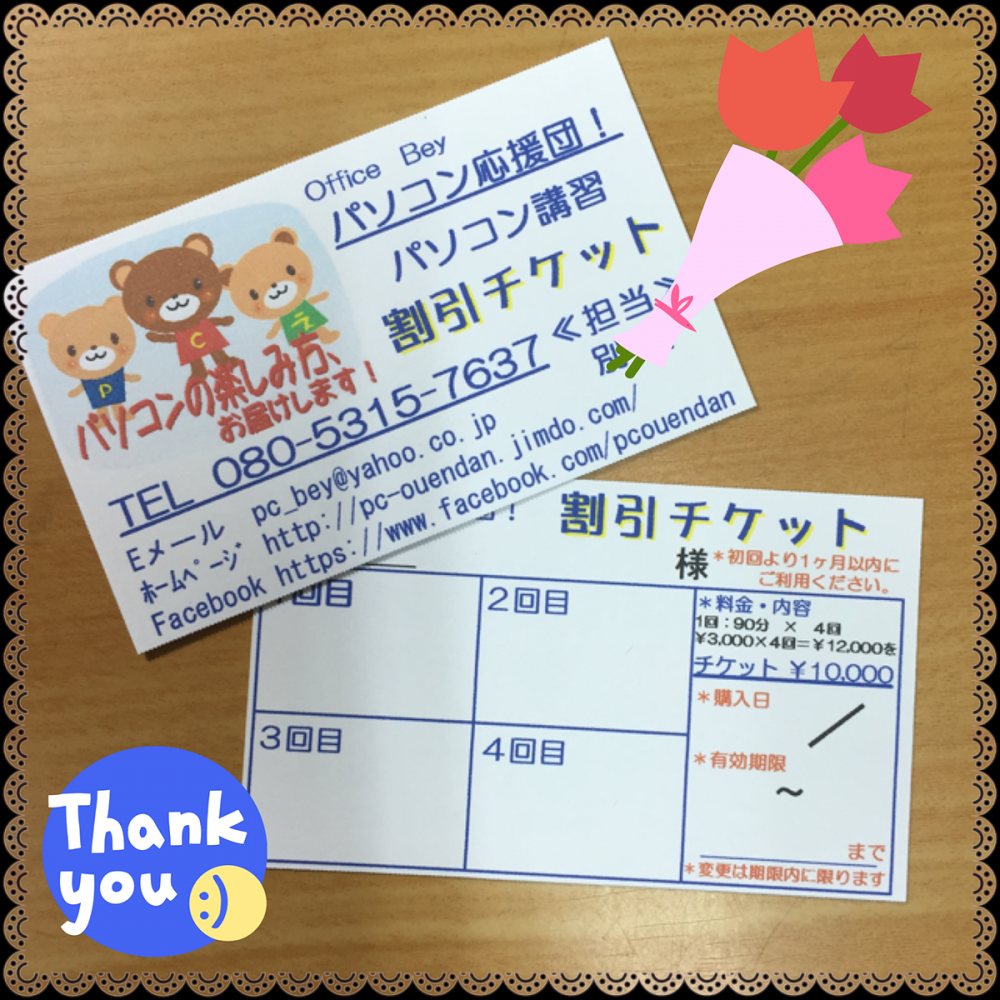 Office Bey
パソコン応援団！
パソコン講習
割引チケット
P
C
え
パソコンの楽しみ方、
お届けします！
TEL 080-5315-7637 ≪担当≫
Eメール pc_bey@yahoo.co.jp
ﾎｰﾑﾍﾟｰｼﾞ http://pc-ouendan.jimdo.com/
Facebook https://www.facebook.com/pcouendan
！ 割引チケット
様
＊初回より1ヶ月以内に
ご利用ください。
回目
2回目
3回目
4回目
＊料金・内容
1回：90分 × 4回
¥3,000×4回＝¥12,000を
チケット ¥10,000
＊購入日
／
＊有効期限
～
まで
＊変更は期限内に限ります
Thank
you
:)